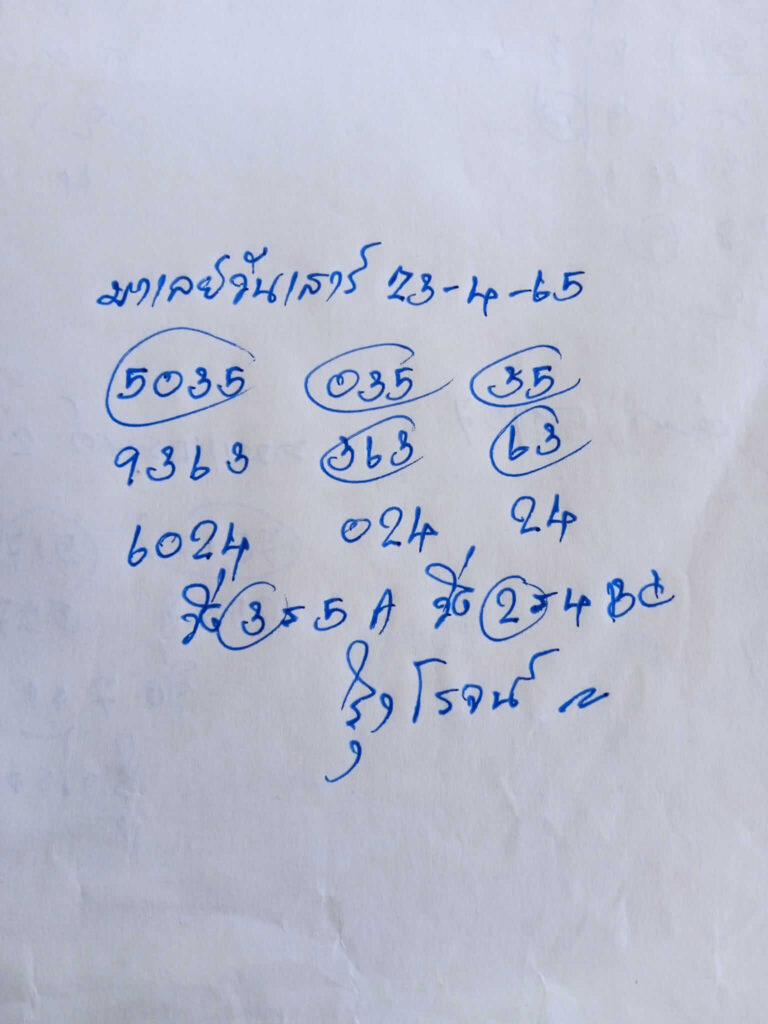 มาเลย์วันเสาร์ 23-4-65
5035 035 35
9363 363 63
6024 024 24
วิ่ง 3-5 A วิ่ง 2-4 BC
รุ่งโรจน์